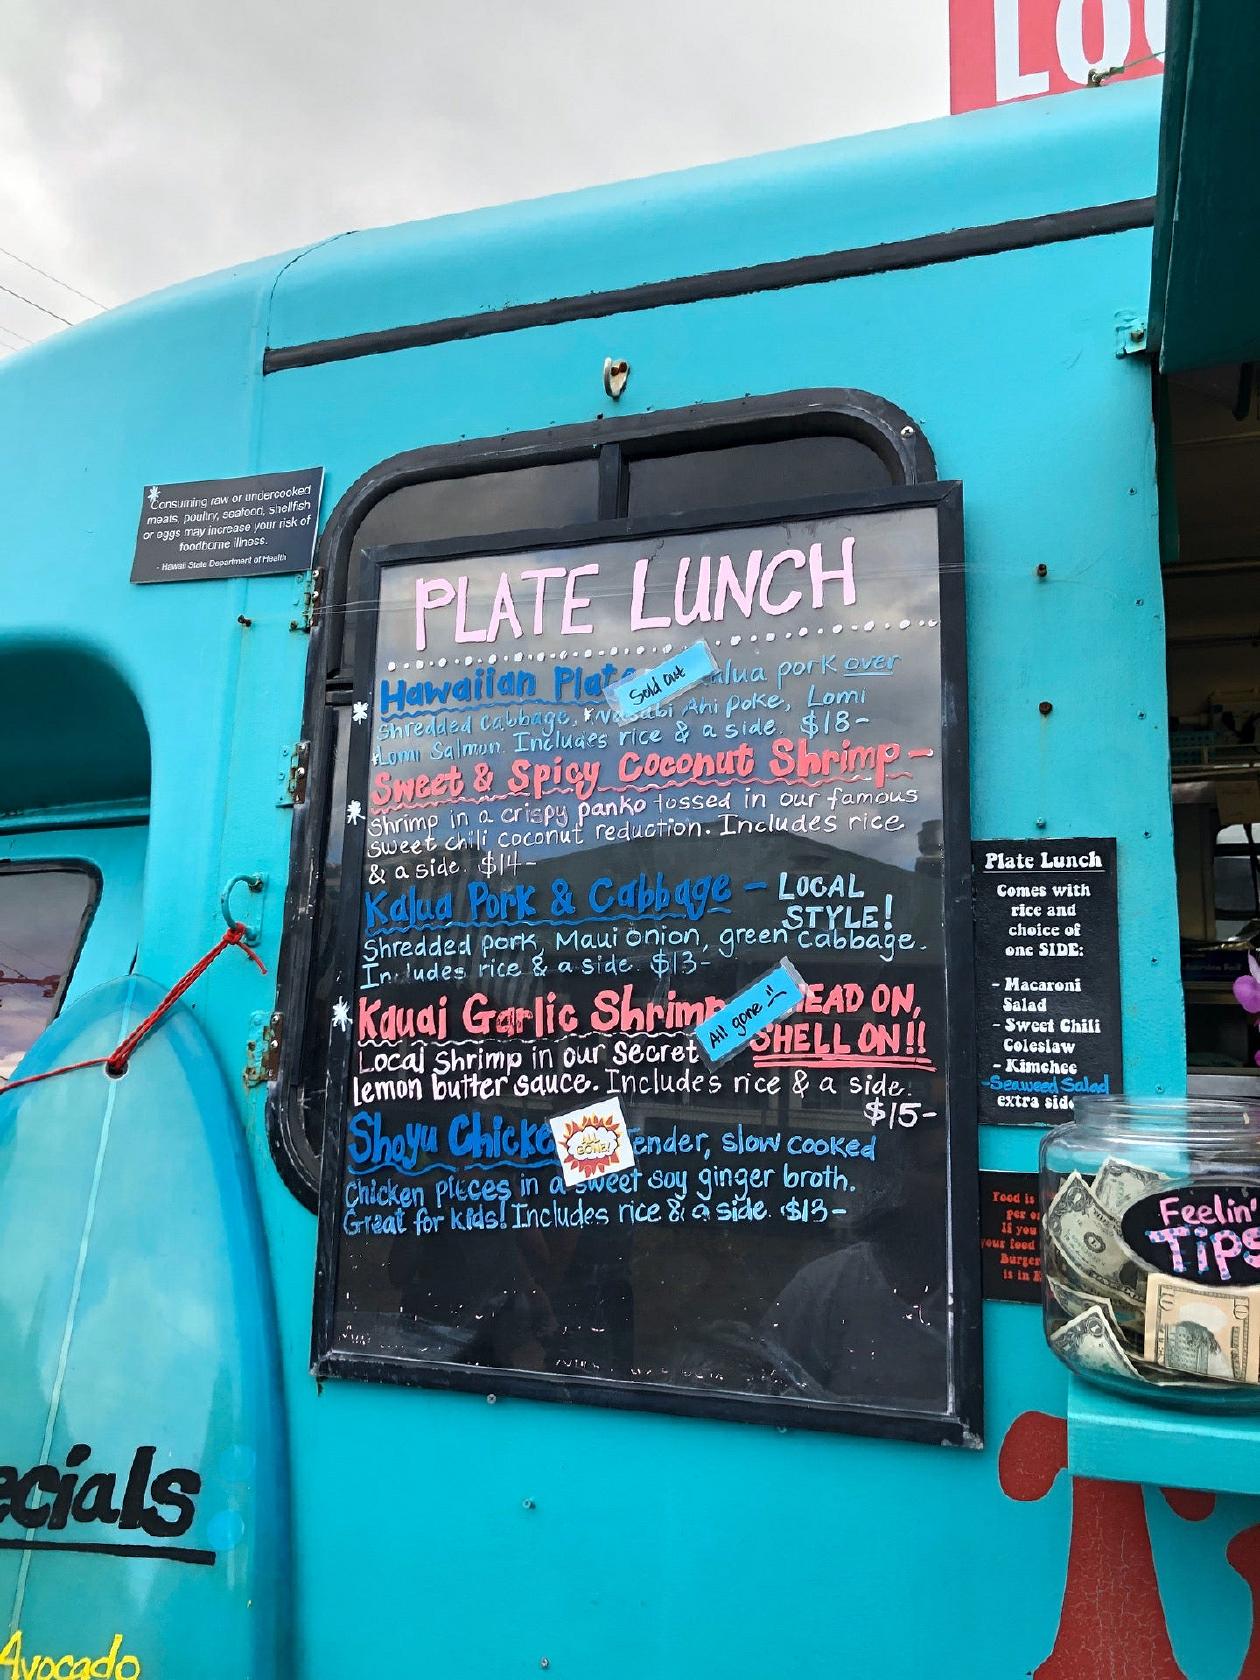 LO
*
Consuming raw or undercooked
meats, poultry, seafood, shellfish
or eggs may increase your risk of
foodborne illness.
- Hawaii State Department of Health
PLATE LUNCH
Hawaiian Plate Kalua pork over
Sold out
* Shredded cabbage, Wasabi Ahi Poke, Lomi
Lomi Salmon. Includes rice & a side. $18-
Sweet & Spicy Coconut Shrimp-
* Shrimp in a crispy panko tossed in our famous
sweet chili coconut reduction. Includes rice
& a side. $14-
Kalua Pork & Cabbage - LOCAL
STYLE!
Shredded pork, Maui onion, green cabbage.
Includes rice & a side. $13-
* Kauai Garlic Shrimp HEAD ON,
All gone
SHELL ON!!
Local Shrimp in our Secret
lemon butter sauce. Includes rice & a side.
$15-
Shoyu Chicke Tender, slow cooked
ALL
GONE!
Chicken pieces in a sweet soy ginger broth.
Great for kids! Includes rice & a side. $13-
Plate Lunch
Comes with
rice and
choice of
one SIDE:
- Macaroni
Salad
- Sweet Chili
Coleslaw
- Kimchee
-Seaweed Salad
extra side
Food is
per o
If you
your food
Burger
is in
Feelin'
Tips
ecials
Avocado